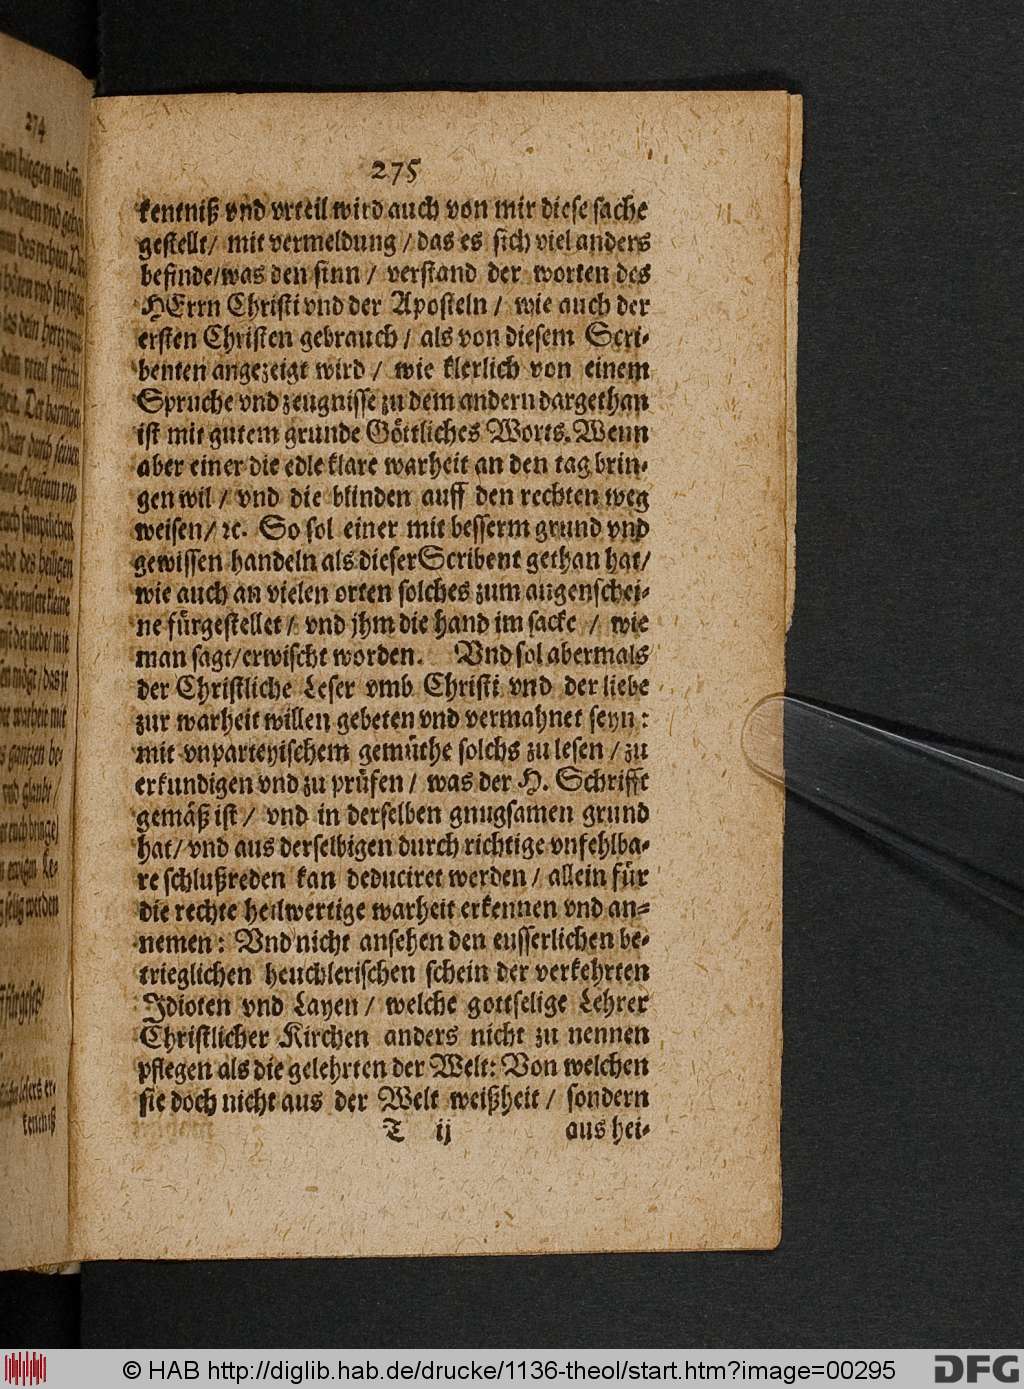 275
kentniß vnd vrteil wird auch von mir diese sache
gestellt/ mit vermeldung / das es sich viel anders
befinde/was den sinn / verstand der worten des
HErrn Christi vnd der Aposteln / wie auch der
ersten Christen gebrauch / als von diesem Scri-
benten angezeigt wird / wie klerlich von einem
Spruche vnd zeugnisse zu dem andern dargethan
ist mit gutem grunde Göttliches Worts. Wenn
aber einer die edle klare warheit an den tag brin-
gen wil / vnd die blinden auff den rechten weg
weisen/ ꝛc. So sol einer mit besserm grund vnd
gewissen handeln als dieser Scribent gethan hat/
wie auch an vielen orten solches zum augenschei-
ne fürgestellet / vnd jhm die hand im sacke / wie
man sagt/erwischt worden. Vnd sol abermals
der Christliche Leser vmb Christi vnd der liebe
zur warheit willen gebeten vnd vermahnet seyn:
mit vnparteyischem gemüthe solchs zu lesen / zu
erkundigen vnd zu prüfen / was der H. Schrifft
gemäß ist / vnd in derselben gnugsamen grund
hat/ vnd aus derselbigen durch richtige vnfehlba-
re schlußreden kan deduciret werden / allein für
die rechte heilwertige warheit erkennen vnd an-
nemen: Vnd nicht ansehen den eusserlichen be-
trieglichen heuchlerischen schein der verkehrten
Idioten vnd Layen / welche gottselige Lehrer
Christlicher Kirchen anders nicht zu nennen
pflegen als die gelehrten der Welt: Von welchen
sie doch nicht aus der Welt weißheit / sondern
T ij aus hei-
274
kentniß
© HAB http://diglib.hab.de/drucke/1136-theol/start.htm?image=00295
DFG